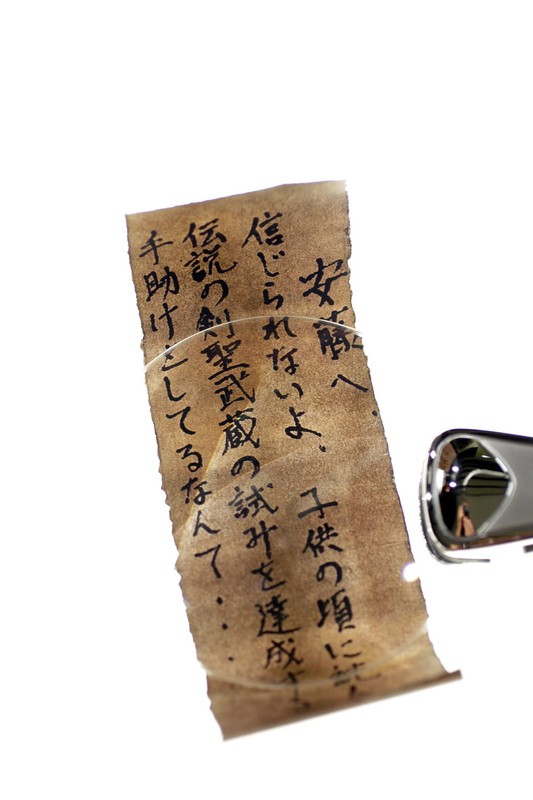 安藤へ、
信じられないよ、子供の頃に読
伝説の剣聖武蔵の試みを達成す
手助けをしてるなんて・・・